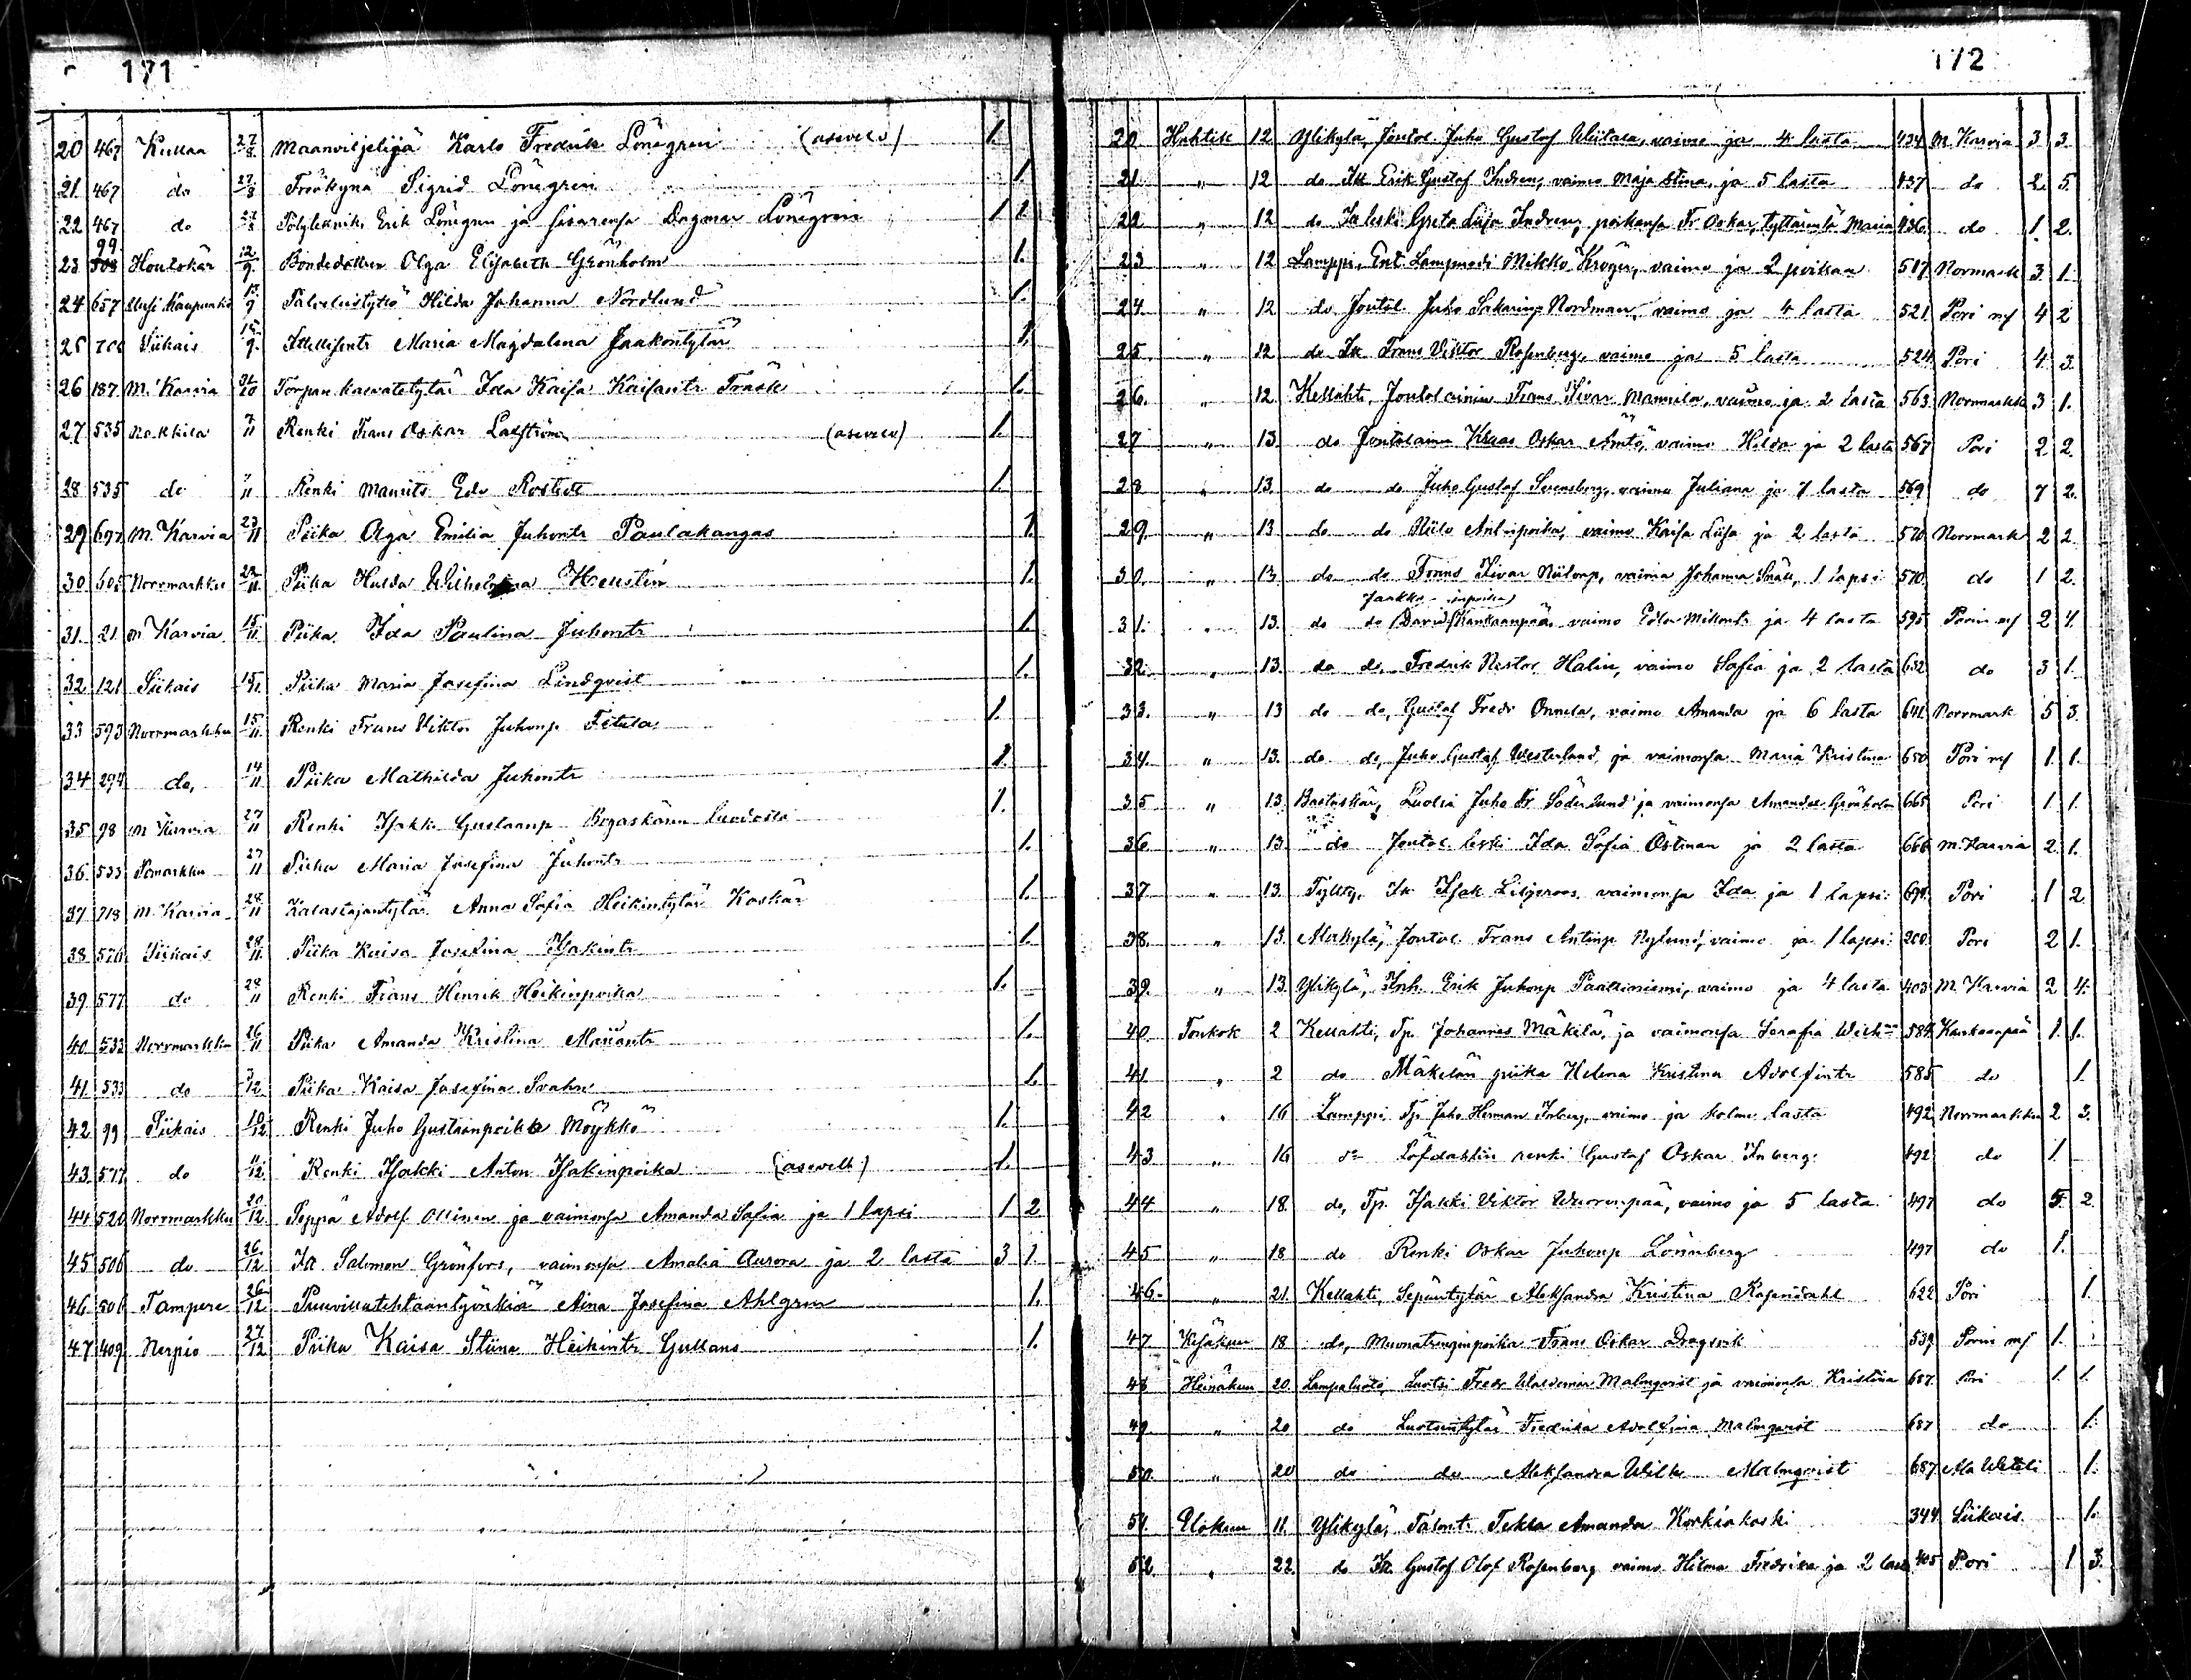 171
20 467 Kullaa 27/8 Maanviljelijä Karlo Fredrik Lönegren (asevelv) 1.
21 467 do 27/8 Fröökynä Sigrid Lönegren 1.
22 467 do 27/8 Polytekniki Erik Lönegren ja sisarensa Dagmar Lönegren 1 1
23 99 Houtskär 12/9 Bondedottren Olga Elisabeth Grönholm 1.
24 657 Uusi Kaupunki 13/9 Palvelustyttö Hilda Johanna Nordlund 1.
25 Siikais 15/9 Itsellisentr Maria Magdalena Jaakontytär 1.
26 187 M. Karvia /10 Torpan kasvatetytär Ida Kaisa Kaisantr Träsk 1.
27 535 Nakkila /11 Renki Frans Oskar Laxström (asevelv) 1.
28 535 do /11 Renki Maurits Edv Rostedt 1.
29 697 M. Karvia 23/11 Piika Olga Emilia Juhontr Paulakangas 1.
30 605 Norrmarkku 22/11 Piika Hulda Wilhelmina Heustin 1.
31. 21 M Karvia 15/11 Piika Ida Paulina Juhontr 1.
32 121 Siikais 15/11 Piika Maria Josefina Lindqvist 1.
33 593 Norrmarkku 15/11 Renki Frans Viktor Juhonp Tetula 1.
34 294 do, 14/11 Piika Mathilda Juhontr 1.
35 98 M Karvia 27/11 Renki Isakki Gustaanp Bogaskären luodosta 1.
36. 533 Pomarkku 27/11 Piika Maria Josefina Juhontr 1.
37 718 M. Karvia 28/11 Kalastajantytär Anna Sofia Heikintytär Kaskär 1.
38 576 Siikais 28/11 Piika Kaisa Josefina Isakintr 1.
39. 577 do 28/11 Renki Frans Henrik Heikinpoika 1.
40 533 Norrmarkku 26/11 Piika Amanda Kristina Mariantr 1.
41. 533 do /12 Piika Kaisa Josefina Svahn 1.
42 99 Siikais 10/12 Renki Juho Gustaanpoika Möykkö 1.
43. 577 do 11/12 Renki Isakki Anton Isakinpoika (asevelv) 1.
44. 520 Norrmarkku 20/12 Seppä Adolf Ollinen ja vaimonsa Amanda Sofia ja 1 lapsi 1 2
45 506 do 26/12 Itl Salomon Grönfors, vaimonsa Amalia Aurora ja 2 lasta 3 1.
46 506 Tampere 26/12 Puuvillatehtaantyönkiä Aina Josefina Ahlgren 1.
47 409 Nerpiö 27/12 Piika Kaisa Stiina Heikintr Gullans 1.
172
20 Huhtik 12 Ylikylä, Joutol. Juho Gustaf Uusitalo, vaimo ja 4 lasta 434 M. Karvia 3 3
21. " 12 do Itl Erik Gustaf Indren, vaimo Maja Stina ja 5 lasta 437 do 2. 5.
22 " 12 do Itl leski Greta Liisa Indren, poikansa Fr Oskar, tyttärensä Maria 436. do 1. 2.
23 " 12 Lamppi, Ent. Lampuodi Mikko Kröger, vaimo ja 2 poikaa 517 Normark 3 1.
24 " 12 do Joutol. Juho Sakarinp Nordman, vaimo ja 4 lasta 521 Pori mf 4 2
25. " 12 do Itl Frans Viktor Rosenberg, vaimo ja 5 lasta 524 Pori 4 3.
26. " 12 Kellahti, Joutolainen Frans Iivar Mannila, vaimo ja 2 lasta 563 Normarkku 3 1.
27 " 13. do Joutolainen Knaas Oskar Amtö, vaimo Hilda ja 2 lasta 567 Pori 2 2
28 " 13. do do Juho Gustaf Svensberg, vaimo Juliana ja 7 lasta 569 do 7 2.
29. " 13 do do Niilo Antinpoika, vaimo Kaisa Liisa ja 2 lasta 570 Norrmark 2 2
30. " 13 do do Frans Iivar Niilonp, vaimo Johanna Snäll, 1 lapsi 570 do 1 2.
Jaakko-inpoika
31. " 13. do do David Kankaanpää, vaimo Edla Mikontr ja 4 lasta 595 Porin mf 2 4.
32. " 13. do do Fredrik Nestor Halin, vaimo Sofia ja 2 lasta 632 do 3 1.
33. " 13 do do, Gustaf Fredr Onnela, vaimo Amanda ja 6 lasta 641 Norrmark 5 3.
34. " 13. do do, Juho Gustaf Westerlund, ja vaimonsa Maria Kristina 650 Pori mf 1. 1.
35 " 13 Bastaskär, Luotsi Juho Fr Söderlund ja vaimonsa Amanda Grönholm 665 Pori 1 1.
36. " 13 do Joutol. leski Ida Sofia Östman ja 2 lasta 666 M. Karvia 2. 1.
37 " 13. Tyltty, Itl Isak Liljeroos, vaimonsa Ida ja 1 lapsi Pori 1 2
38. " 13. Alakylä, Joutol. Frans Antinp Nylund, vaimo ja 1 lapsi 200 Pori 2 1.
39. " 13. Ylikylä, Inh. Erik Juhonp Paattiniemi, vaimo ja 4 lasta 403 M. Karvia 2 4.
40. Toukok 2 Kellahti, Tp. Johannes Mäkilä, ja vaimonsa Serafia Wilh 584 Kankaanpää 1. 1.
41 " 2 do Mäkelän piika Helena Kristina Adolfintr 585 do 1.
42 " 16 Lamppi. Tp. Juho Herman Inberg, vaimo ja kolme lasta 492 Norrmarkku 2 3.
43 " 16 do Löfdahlin renki Gustaf Oskar Inberg 492 do 1.
44 " 18. do, Tp. Isakki Viktor Wuorenpää, vaimo ja 5 lasta 497 do 5. 2.
45 " 18 do Renki Oskar Juhonp Lönnberg 497 do 1.
46. " 21. Kellahti, Sepäntytär Aleksandra Kristina Rosendahl 622 Pori 1.
47 Kesäkuu 18 do, Muonatrenginpoika Frans Oskar Dragsvik 539 Porin mf 1.
48 Heinäkuu 20. Lampaluoto, Luotsi Fredr Waldemar Malmqvist ja vaimonsa Kristina 687 Pori 1. 1.
49. " 20 do Luotsintytär Fredrika Adolfina Malmqvist 687 do 1.
50. " 20 do do Aleksandra Wilh Malmqvist 687 Ala Weteli 1.
51. Elokuu 11. Ylikylä, Talontr. Tekla Amanda Korkiakoski 344 Siikais 1.
52. " 22 do Itl. Gustaf Olof Rosenberg vaimo Hilma Fredrika ja 2 last 405 Pori 1 3.